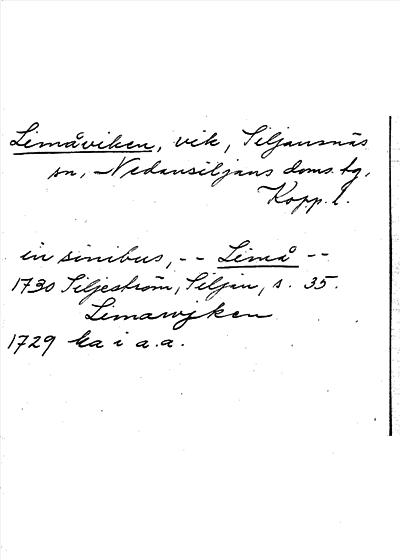 Limåviken, vik, Siljansnäs
sn, Nedansiljans doms. tg,
Kopp. l.
in sinibus, -- Limå --
1730 Siljeström, Siljan, s. 35.
Limawjken
1729 ka i a.a.